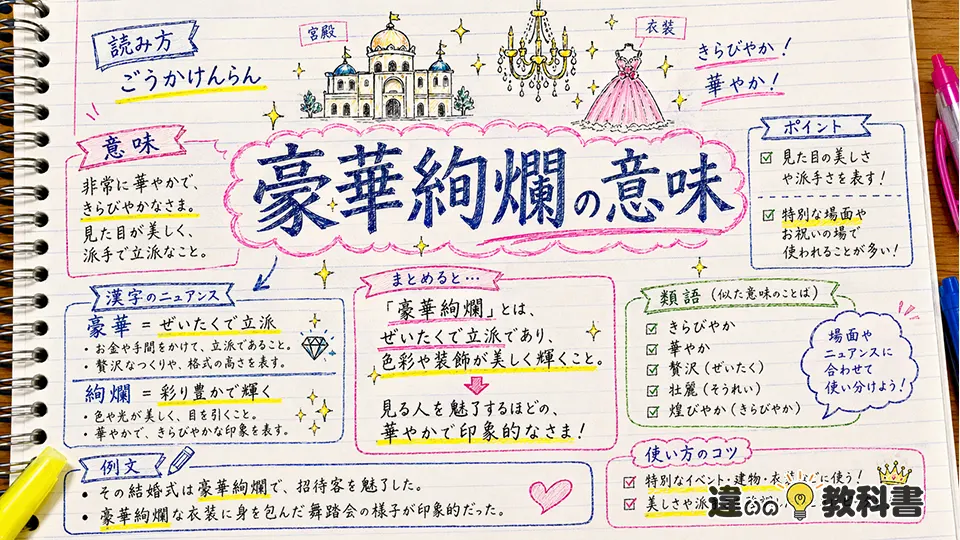 読み方
ごうかけんらん
宮殿
衣装
きらびやか!
華やか!
豪華絢爛の意味
意味
非常に華やかで、
きらびやかなさま。
見た目が美しく、
派手で立派なこと。
ポイント
見た目の美しさ
や派手さを表す!
特別な場面や
お祝いの場で
使われることが多い!
漢字のニュアンス
豪華 = ぜいたくで立派
・お金や手間をかけて、立派であること。
・贅沢なつくりや、格式の高さを表す。
絢爛 = 彩り豊かで輝く
・色や光が美しく、目を引くこと。
・華やかで、きらびやかな印象を表す。
まとめると…
「豪華絢爛」とは、
ぜいたくで立派であり、
色彩や装飾が美しく輝くこと。
見る人を魅了するほどの、
華やかで印象的なさま!
類語(似た意味のことば)
きらびやか
華やか
贅沢(ぜいたく)
壮麗(そうれい)
煌びやか(きらびやか)
場面や
ニュアンスに
合わせて
使い分けよう!
例文
• その結婚式は豪華絢爛で、招待客を魅了した。
• 豪華絢爛な衣装に身を包んだ舞踏会の様子が印象的だった。
使い方のコツ
特別なイベント・建物・衣に使う!
美しさや派
違いの教科書